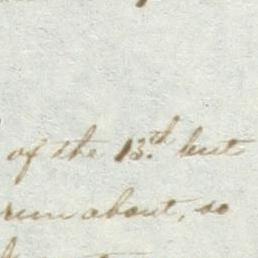 of the 13th but
run about, so